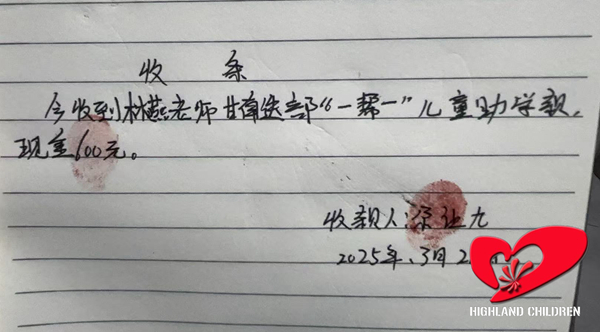 收 条
今收到林燕老师甘南迭部“一帮一”儿童助学款,
现金600元。
收款人: 让九
2025年.3月2
HIGHLAND CHILDREN